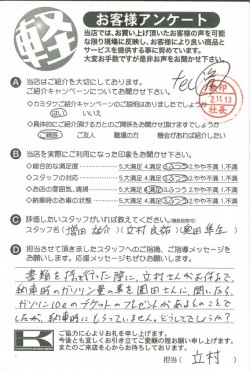 軽
お客様アンケート
当店では、お買い上げ頂いたお客様の声を可能
な限り現場に反映し、お客様により良い商品と
サービスを提供する事に努めています。
大変お手数ですが是非お声をお聞かせ下さい。
tel
2.11.13
社長
A 当店はご紹介を大切にしております。
ご紹介キャンペーンについてお聞かせ下さい。
◇カミタケご紹介キャンペーンのご説明はありましたでしょうか
はい いいえ
◇具体的にご紹介頂ける方とのご関係をお聞かせ頂けますでしょうか
ご親族 ご友人 職場の方 機会があれば紹介したい
B 当店を実際にご利用になった印象をお聞かせ下さい。
◇総合的な満足度 5.大満足 4.満足 3.ふつう 2.やや不満 1.不満
◇スタッフの対応 5.大満足 4.満足 3.ふつう 2.やや不満 1.不満
◇お店の雰囲気、清掃 5.大満足 4.満足 3.ふつう 2.やや不満 1.不満
◇納車時のお車の状態 5.大満足 4.満足 3.ふつう 2.やや不満 1.不満
C 評価したいスタッフがいれば教えてください。(複数回答可)
スタッフ名(増田 祐介)(立村 良祐)(奥田 隼生)
D 担当させて頂きましたスタッフへのご指摘、ご指導メッセージを
お願いします。応援メッセージもぜひお願いします。
書類を持って行った際に、立村さんがお休みで、
納車時のガソリン量の事を園田さんに、聞いたら、
ガソリン10ℓのチケットのプレゼントがあるとのことで
したが、納車時にもらっていません。どうしてでしょうか?
K
ご協力に心よりお礼を申し上げます。
今後とも宜しくお引き立てご愛顧の程お願い申し上げます。
またのご来店を心からお待ちしております。
担当(立村)